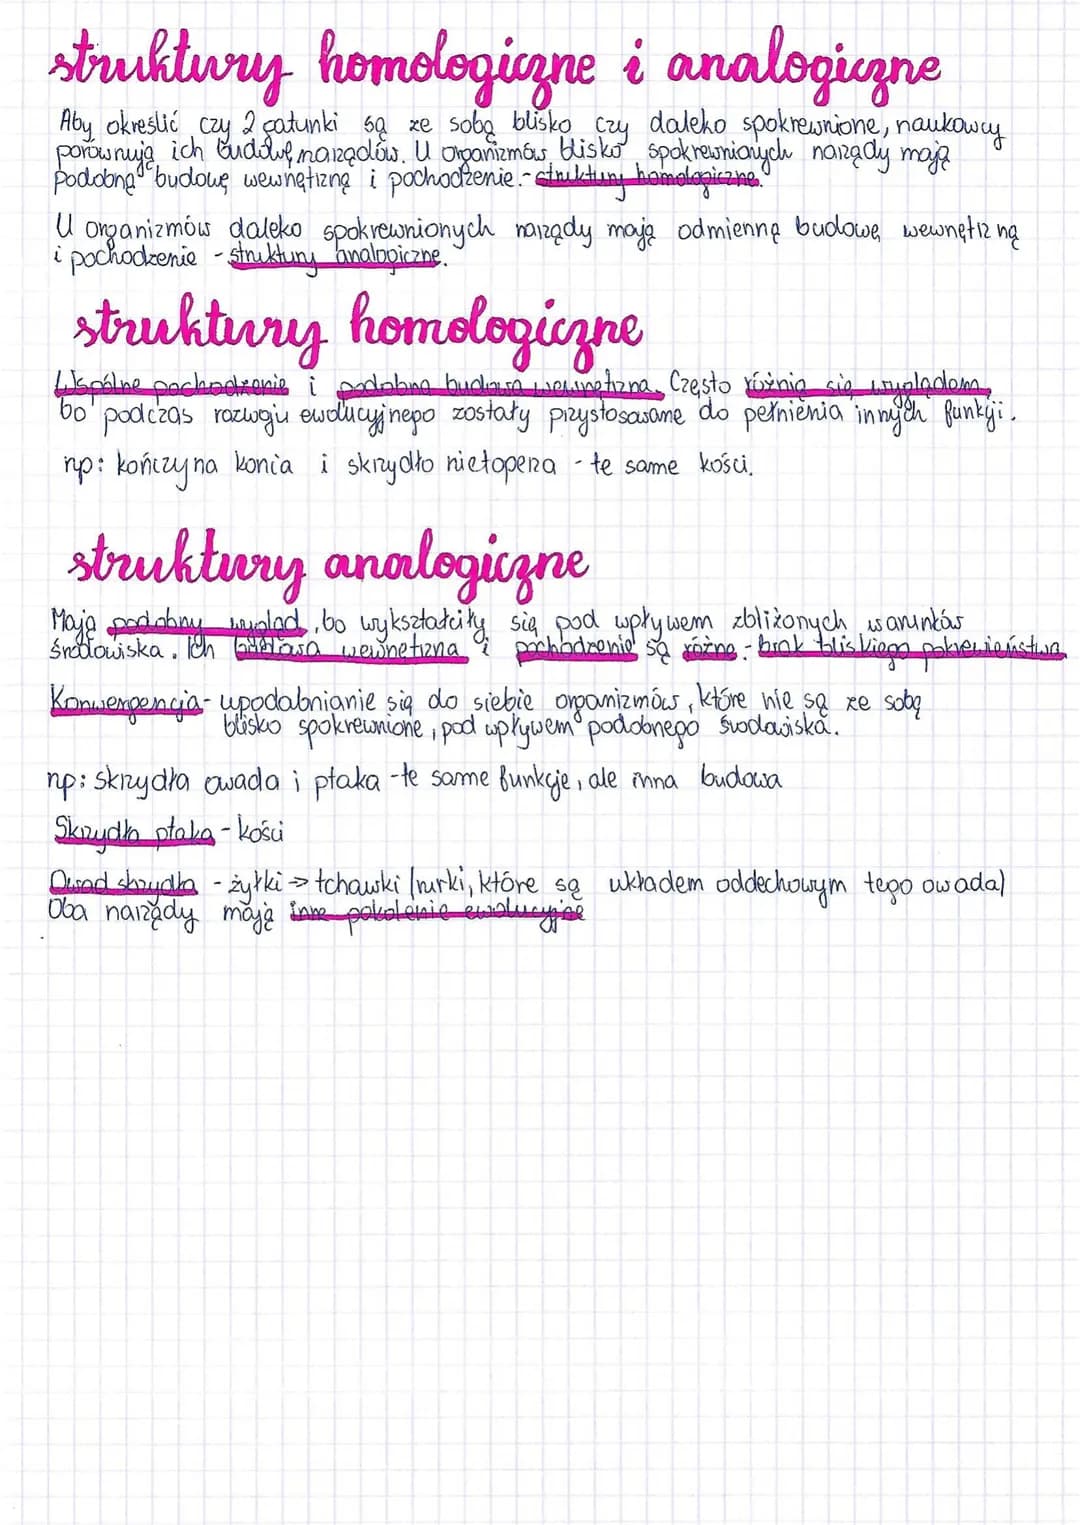 struktury homologiczne i analogiczne
Aby określić czy 2 gatunki są ze sobą blisko czy daleko spokrewnione, naukowcy
porównują ich budowę narządów. U organizmów blisko spokrewnionych narządy mają
podobną budowę wewnętrzną i pochodzenie.- struktury homologiczne.
U organizmów daleko spokrewnionych narządy mają odmienną budowę wewnętrzną
i pochodzenie - struktury analogiczne.
struktury homologiczne
Wspólne pochodzenie i podobna budowa wewnętrzna. Często różnią się wyglądem,
bo podczas rozwoju ewolucyjnego zostały przystosowane do pełnienia innych funkcji.
np: kończyna konia i skrzydło nietoperza - te same kości.
struktury analogiczne
Mają podobny wygląd, bo wykształciły się pod wpływem zbliżonych warunków
środowiska. Ich budowa wewnętrzna i pochodzenie są różne - brak bliskiego pokrewieństwa.
Konwergencja- upodabnianie się do siebie organizmów, które nie są ze sobą
blisko spokrewnione, pod wpływem podobnego środowiska.
np: skrzydła owada i ptaka - te same funkcje, ale inna budowa
Skrzydło ptaka - kości
Owad skrzydła - żyłki → tchawki (rurki, które są układem oddechowym tego owada)
Oba narządy mają inne pokolenie ewolucyjne